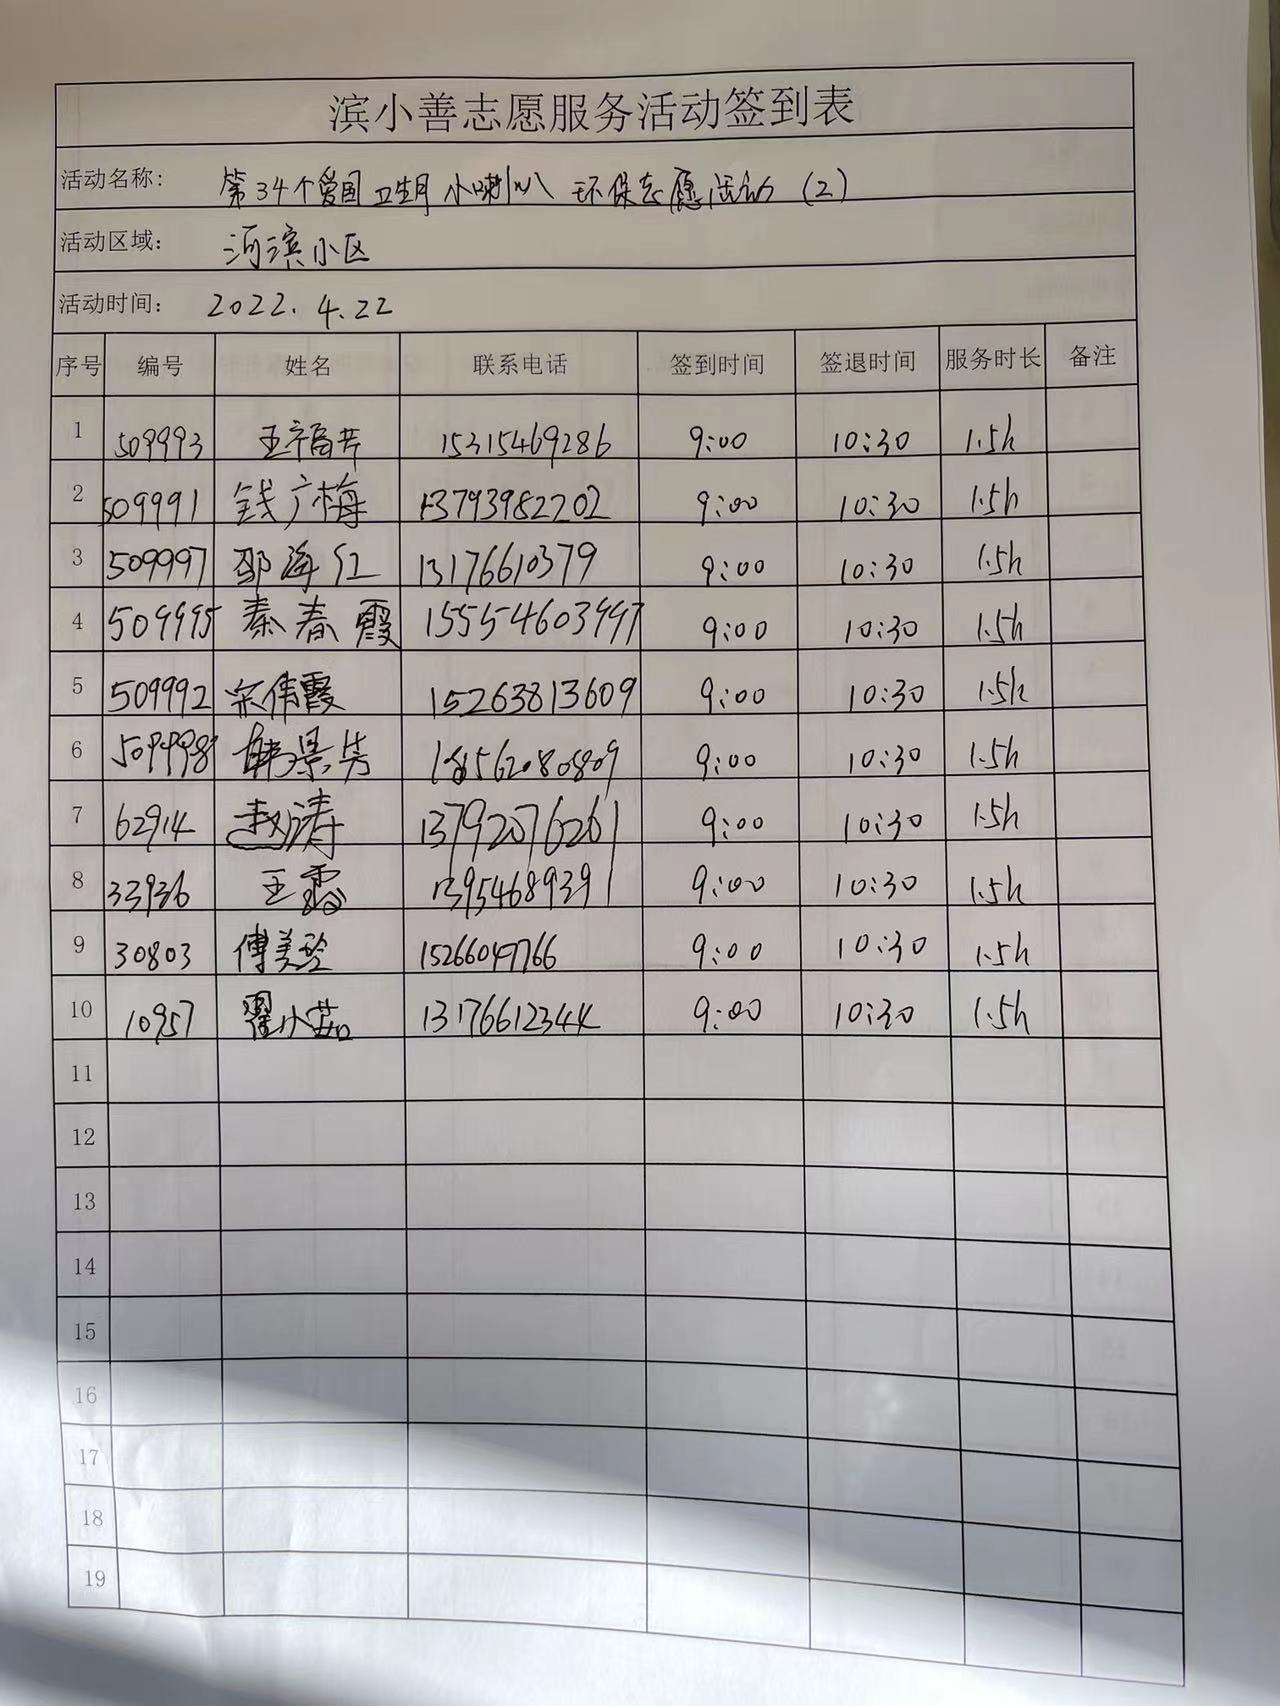 滨小善志愿服务活动签到表
活动名称: 第34个爱国卫生月小喇叭环保志愿活动(2)
活动区域: 河滨小区
活动时间: 2022.4.22
序号 编号 姓名 联系电话 签到时间 签退时间 服务时长 备注
1 509993 王福芹 15315469286 9:00 10:30 1.5h
2 509991 钱广梅 13793982202 9:00 10:30 1.5h
3 509997 邵海红 13176610379 9:00 10:30 1.5h
4 509995 秦春霞 15554603997 9:00 10:30 1.5h
5 509992 宋伟霞 15263813609 9:00 10:30 1.5h
6 509998 韩景芳 9:00 10:30 1.5h
7 62914 赵涛 13792076261 9:00 10:30 1.5h
8 33936 王露 13954689391 9:00 10:30 1.5h
9 30803 傅美玲 15266049766 9:00 10:30 1.5h
10 10957 翟小茹 13176612344 9:00 10:30 1.5h
11
12
13
14
15
16
17
18
19